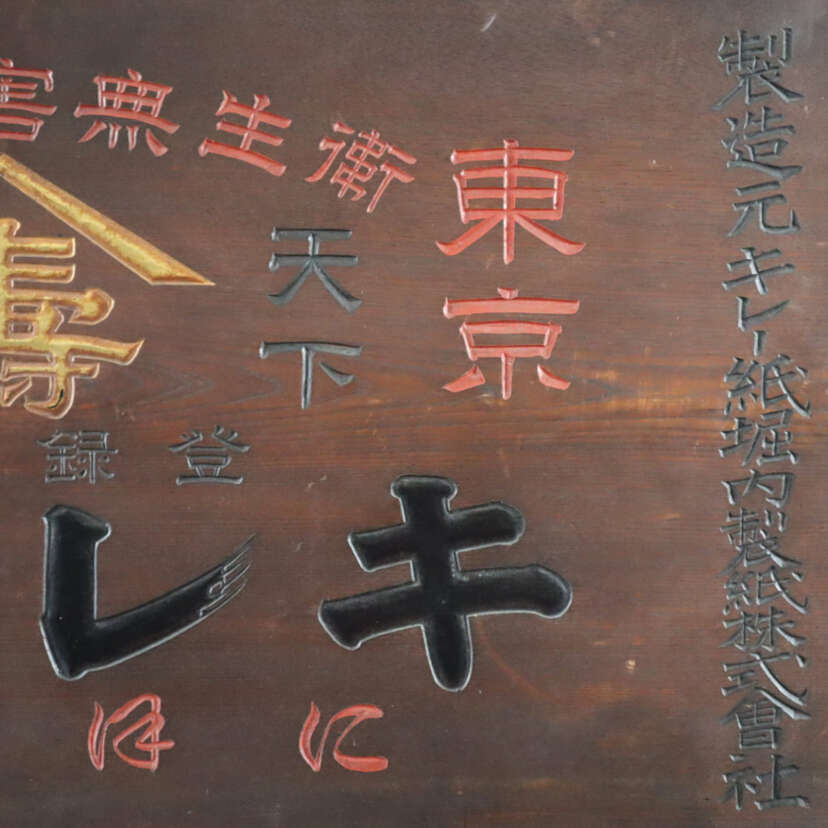 製造元キレー紙堀内製紙株式會社
東京
衛生無害
天下
壽
登録
キレ
にほ